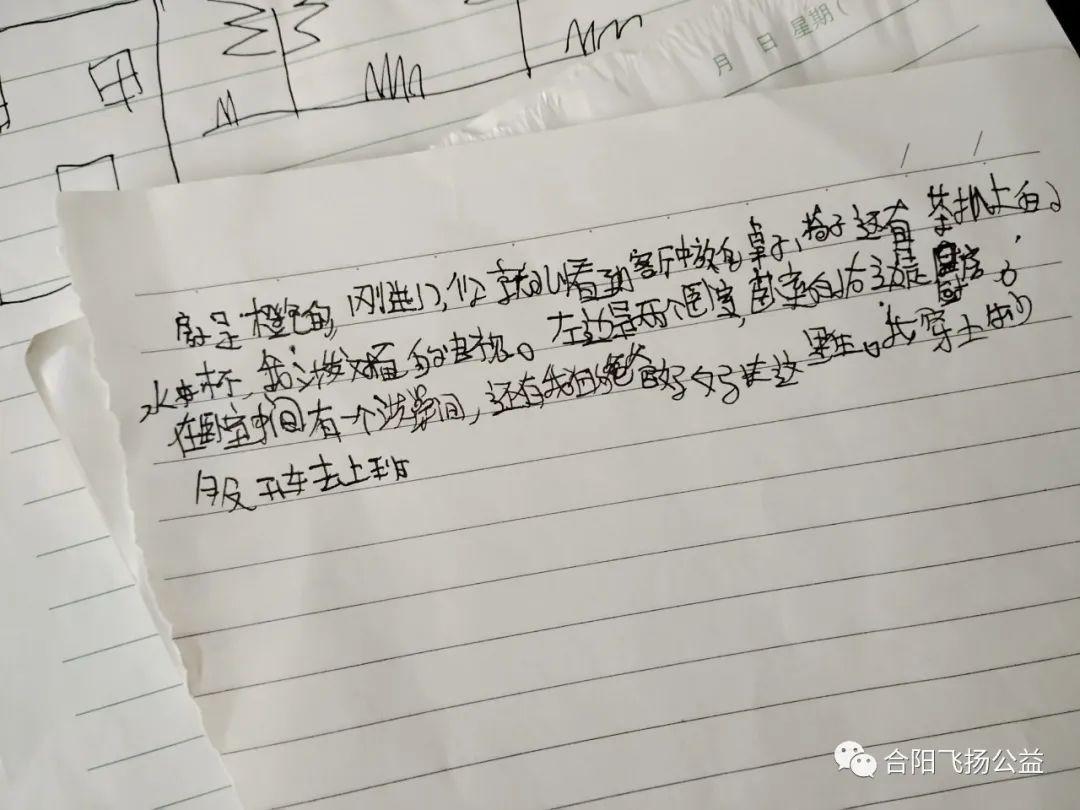 月 日 星期(
家是橙色的,刚进门,你就可以看到客厅中放的桌子、椅子还有茶几上的
水杯,和沙发对面的电视。左边是两个卧室,右边是
在卧室中间有一个洗澡间,还有我的爸爸 这里。我穿上我的
服开车去上班
合阳飞扬公益